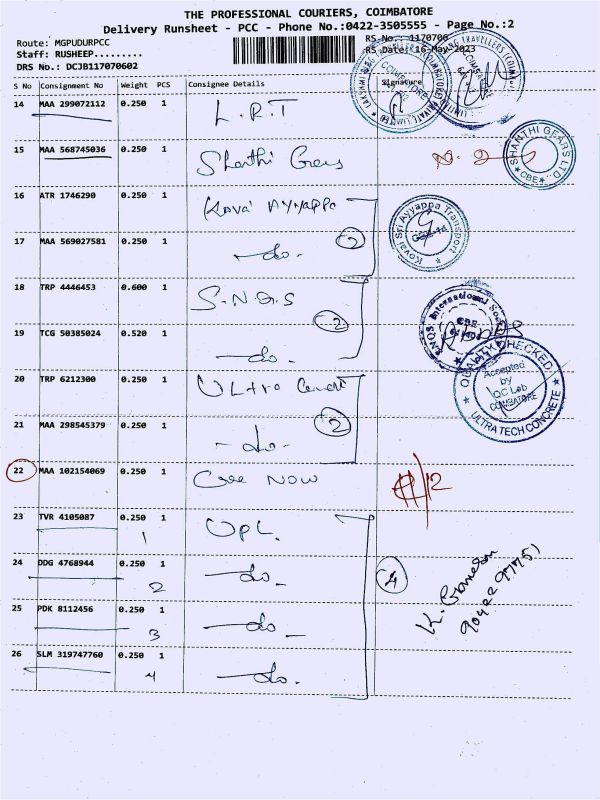 THE PROFESSIONAL COURIERS, COIMBATORE
Delivery Runsheet - PCC - Phone No.:0422-3505555 - Page No.:2
Route: MGPUDURPCC
Staff: RUSHEEP.........
DRS No.: DCJB117070602
RS No.: 1170706
RS Date: 16-May-2023
S No Consignment No Weight PCS Consignee Details Signature
14 MAA 299072112 0.250 1 L.R.T
15 MAA 568745036 0.250 1 Shanthi Gears
SHANTHI GEARS LTD. CBE
16 ATR 1746290 0.250 1 Kovai Ayyappa
Kovai Sri Ayyappa Transport
17 MAA 569027581 0.250 1 -do- 2
18 TRP 4446453 0.600 1 S.N.Q.S
SNQS International
CBE
19 TCG 50385024 0.520 1 -do- 2
QUALITY CHECKED
Accepted
by
QC Lab
COIMBATORE
ULTRA TECH CONCRETE
20 TRP 6212300 0.250 1 Ultra
21 MAA 298545379 0.250 1 -do- 2
22 MAA 102154069 0.250 1 Now
23 TVR 4105087 0.250 1 UPL
1
24 DDG 4768944 0.250 1 -do- 4
2
25 PDK 8112456 0.250 1 -do-
3
26 SLM 319747760 0.250 1 -do-
4